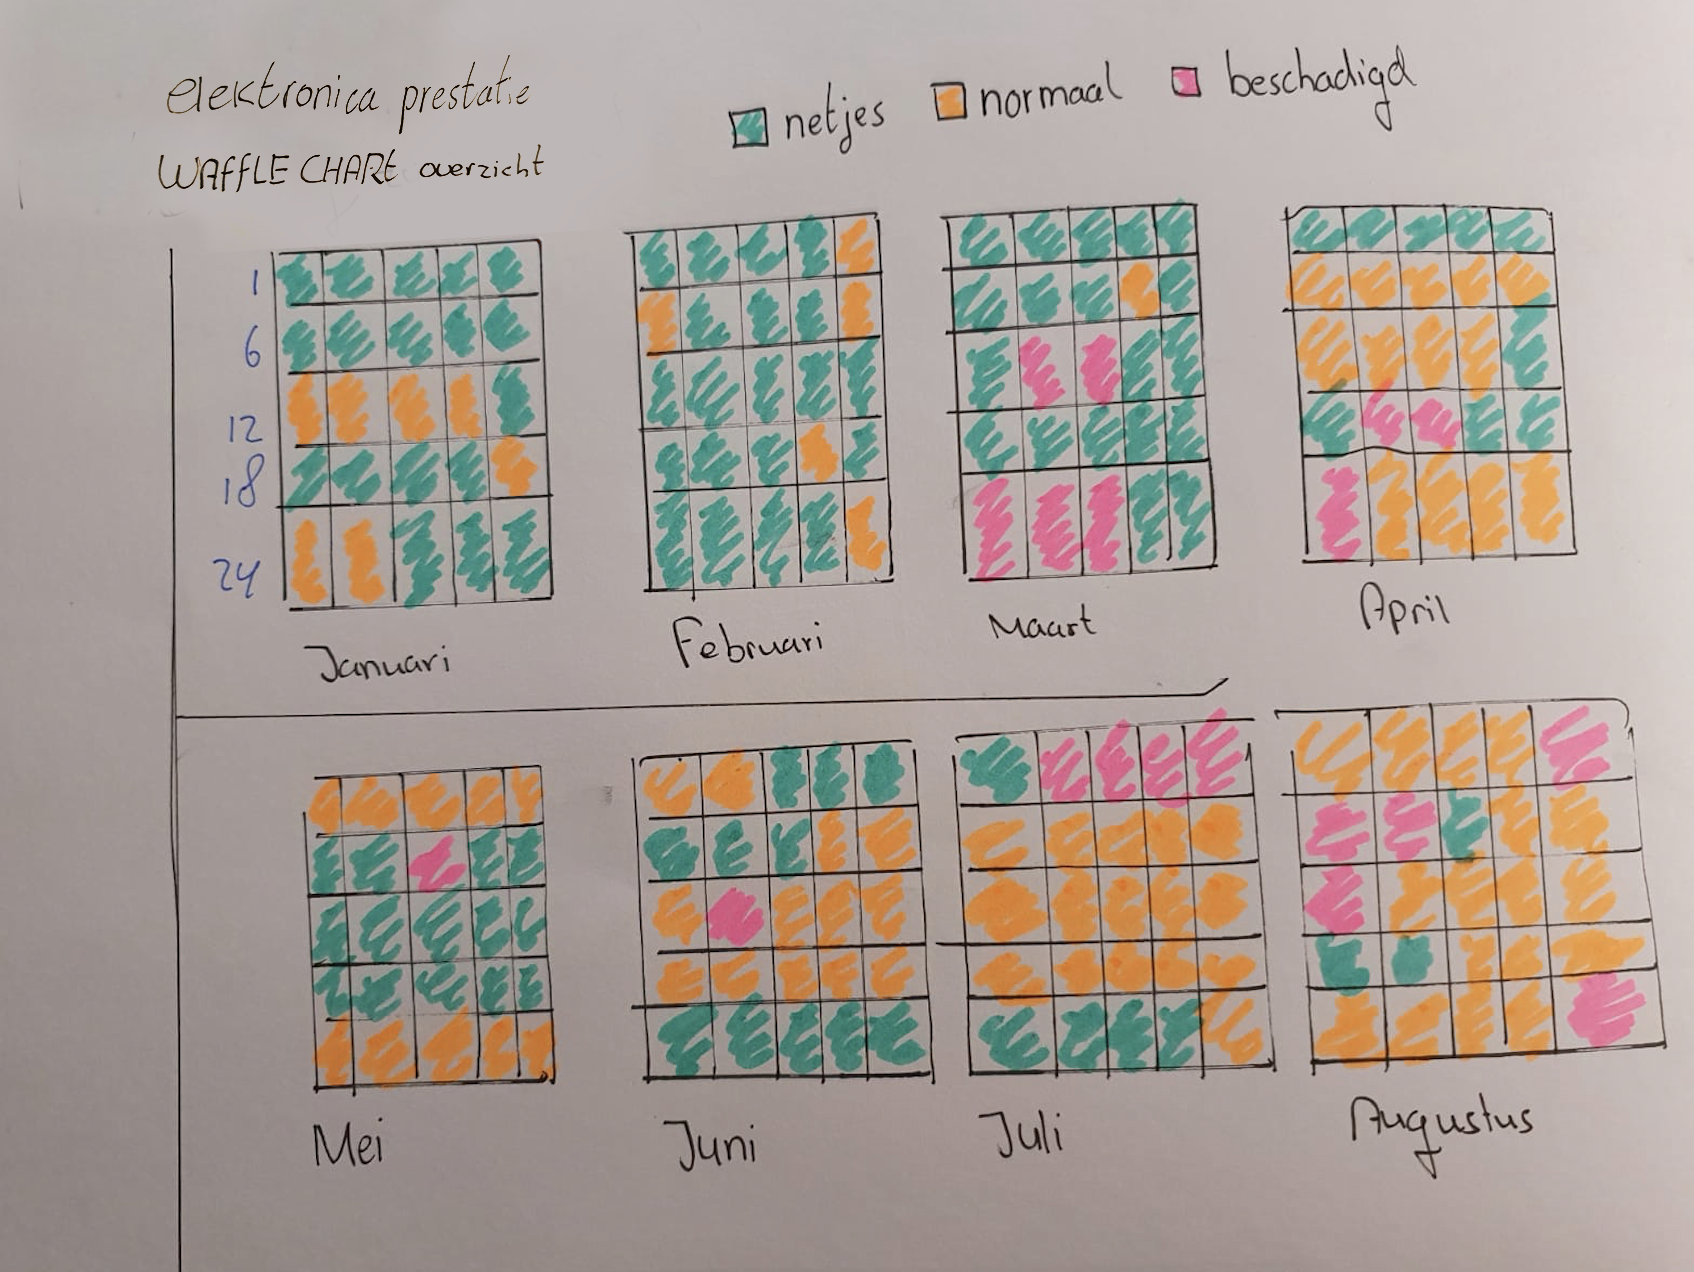 elektronica prestatie
WAFFLE CHART overzicht
netjes normaal beschadigd
1
6
12
18
24
Januari Februari Maart April
Mei Juni Juli Augustus